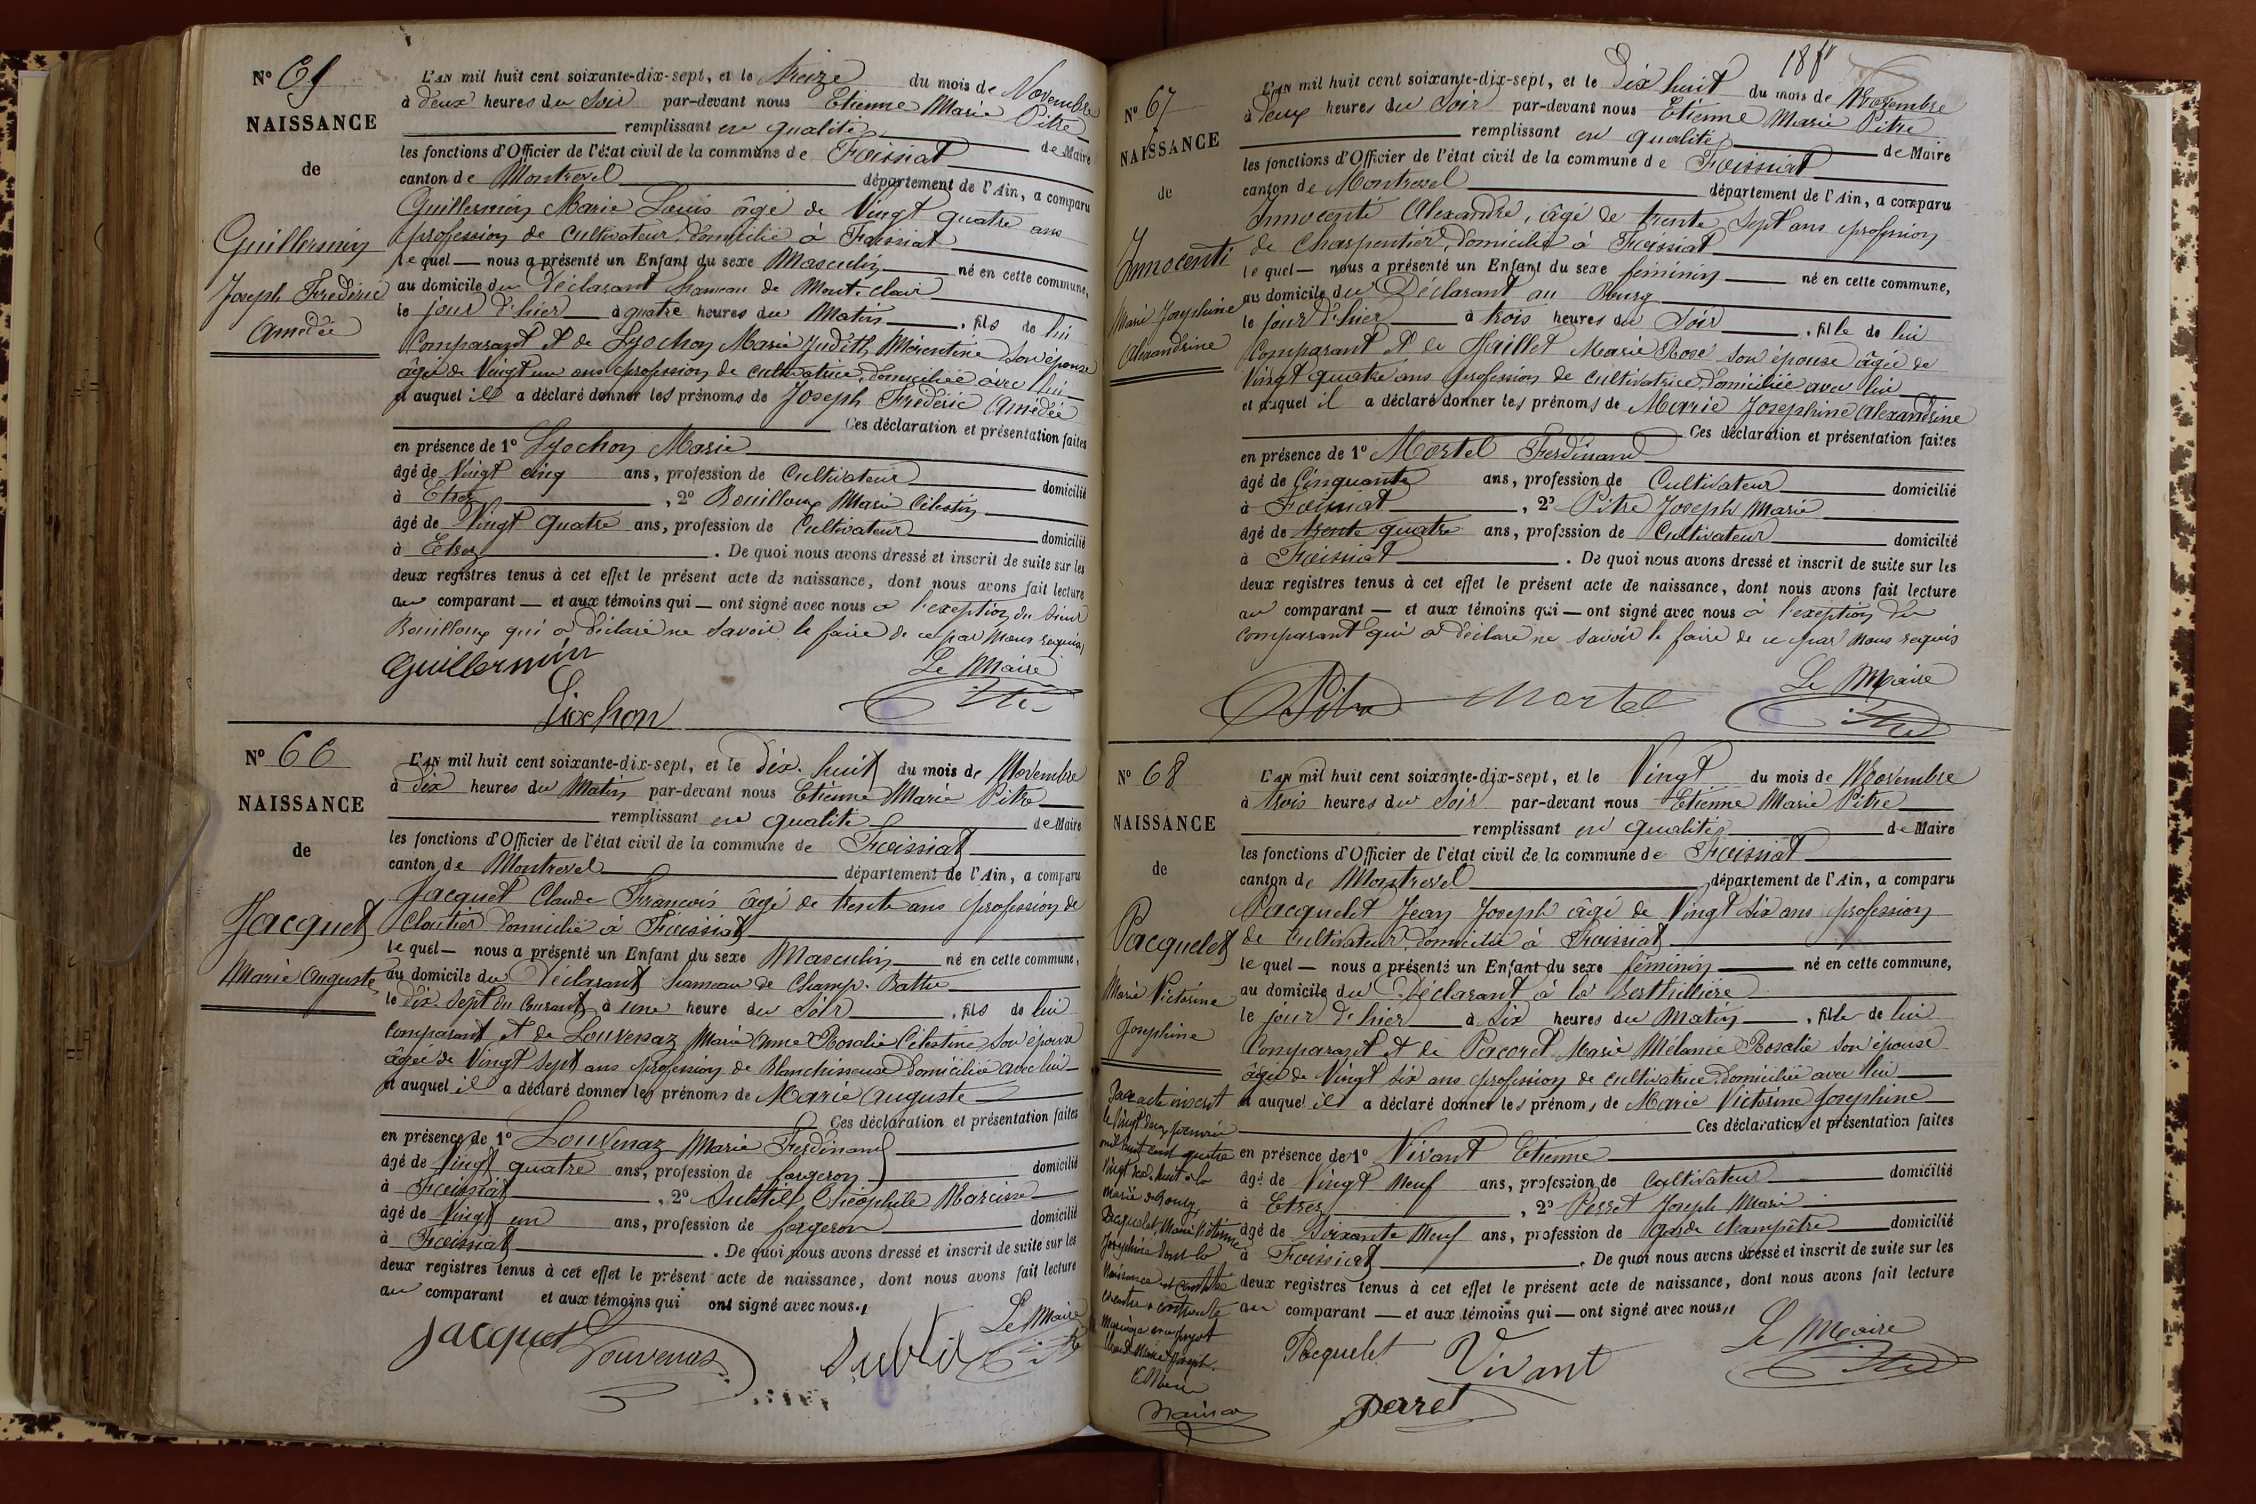 N° 65
NAISSANCE
de
Guillermin
Joseph Frédéric
Amédée
L'AN mil huit cent soixante-dix-sept, et le treize du mois de Novembre
à deux heures du Soir par-devant nous Etienne Marie Pitre
remplissant en qualité de Maire
les fonctions d'Officier de l'état civil de la commune de Foissiat
canton de Montrevel département de l'Ain, a comparu
Guillermin Marie Louis âgé de Vingt quatre ans
profession de Cultivateur domicilié à Foissiat
lequel nous a présenté un Enfant du sexe Masculin né en cette commune,
au domicile du Déclarant hameau de Mont-clair
le jour d'hier à quatre heures du Matin, fils de lui
Comparant et de Lyochon Marie Judith Florentine son épouse
âgée de Vingt un ans profession de cultivatrice domiciliée avec lui
et auquel il a déclaré donner les prénoms de Joseph Frédéric Amédée
Ces déclaration et présentation faites
en présence de 1° Lyochon Marie
âgé de Vingt cinq ans, profession de Cultivateur domicilié
à Etrez, 2° Bouilloux Marie Célestin
âgé de Vingt quatre ans, profession de Cultivateur domicilié
à Etrez. De quoi nous avons dressé et inscrit de suite sur les
deux registres tenus à cet effet le présent acte de naissance, dont nous avons fait lecture
au comparant et aux témoins qui ont signé avec nous à l'exeption du sieur
Bouilloux qui a déclaré ne savoir le faire de ce par nous requis
Guillermin
Le Maire
Liochon
Pitre
N° 66
NAISSANCE
de
Jacquet
Marie Auguste
L'AN mil huit cent soixante-dix-sept, et le dix-huit du mois de Novembre
à dix heures du Matin par-devant nous Etienne Marie Pitre
remplissant en qualité de Maire
les fonctions d'Officier de l'état civil de la commune de Foissiat
canton de Montrevel département de l'Ain, a comparu
Jacquet Claude François âgé de trente ans profession de
Cloutier domicilié à Foissiat
lequel nous a présenté un Enfant du sexe Masculin né en cette commune,
au domicile du Déclarant hameau de Champ-Battu
le dix-sept du courant à une heure du Soir, fils de lui
comparant et de Louvenaz Marie Anne Rosalie Célestine son épouse
âgée de Vingt Sept ans profession de Blanchisseuse domiciliée avec lui
et auquel il a déclaré donner les prénoms de Marie Auguste
Ces déclaration et présentation faites
en présence de 1° Louvenaz Marie Ferdinand
âgé de Vingt quatre ans, profession de forgeron domicilié
à Foissiat, 2° Subtil Théophile Narcisse
âgé de Vingt un ans, profession de forgeron domicilié
à Foissiat. De quoi nous avons dressé et inscrit de suite sur les
deux registres tenus à cet effet le présent acte de naissance, dont nous avons fait lecture
au comparant et aux témoins qui ont signé avec nous.
Le Maire
Jacquet Louvenas Subtil Pitre
N° 67
NAISSANCE
de
Innocenti
Marie Josephine
Alexandrine
L'AN mil huit cent soixante-dix-sept, et le Dix huit du mois de Novembre
à deux heures du Soir par-devant nous Etienne Marie Pitre
remplissant en qualité de Maire
les fonctions d'Officier de l'état civil de la commune de Foissiat
canton de Montrevel département de l'Ain, a comparu
Innocenti Alexandre, âgé de trente Sept ans profession
de Charpentier domicilié à Foissiat
lequel nous a présenté un Enfant du sexe féminin né en cette commune,
au domicile du Déclarant au Bourg
le jour d'hier à trois heures du Soir, fille de lui
Comparant et de Haillet Marie Rose son épouse âgée de
Vingt quatre ans profession de cultivatrice domiciliée avec lui
et auquel il a déclaré donner les prénoms de Marie Josephine Alexandrine
Ces déclaration et présentation faites
en présence de 1° Mortel Ferdinand
âgé de Cinquante ans, profession de Cultivateur domicilié
à Foissiat, 2° Pitre Joseph Marie
âgé de trente quatre ans, profession de Cultivateur domicilié
à Foissiat. De quoi nous avons dressé et inscrit de suite sur les
deux registres tenus à cet effet le présent acte de naissance, dont nous avons fait lecture
au comparant et aux témoins qui ont signé avec nous à l'exeption du
comparant qui a déclaré ne savoir le faire de ce par nous requis
Le Maire
Pitre Martel Pitre
N° 68
NAISSANCE
de
Pacquelet
Marie Victorine
Josephine
L'AN mil huit cent soixante-dix-sept, et le Vingt du mois de Novembre
à trois heures du Soir par-devant nous Etienne Marie Pitre
remplissant en qualité de Maire
les fonctions d'Officier de l'état civil de la commune de Foissiat
canton de Montrevel département de l'Ain, a comparu
Pacquelet Jean Joseph âgé de Vingt Six ans profession
de Cultivateur domicilié à Foissiat
lequel nous a présenté un Enfant du sexe féminin né en cette commune,
au domicile du Déclarant à la Berthillière
le jour d'hier à Six heures du Matin, fille de lui
Comparant et de Pacoret Marie Mélanie Rosalie son épouse
âgée de Vingt Six ans profession de cultivatrice domiciliée avec lui
et auquel il a déclaré donner les prénoms de Marie Victorine Josephine
Ces déclaration et présentation faites
en présence de 1° Vivant Etienne
âgé de Vingt Neuf ans, profession de Cultivateur domicilié
à Etrez, 2° Perret Joseph Marie
âgé de Soixante Neuf ans, profession de Garde champêtre domicilié
à Foissiat. De quoi nous avons dressé et inscrit de suite sur les
deux registres tenus à cet effet le présent acte de naissance, dont nous avons fait lecture
au comparant et aux témoins qui ont signé avec nous
Le Maire
Pacquelet Vivant Pitre
perret
Par acte inscrit
le Vingt deux Janvier
mil huit cent quatre
Vingt dix-huit à la
Mairie de Bourg
Pacquelet Marie Victorine
Joséphine dont la
Naissance est constatée
ci-contre a contracté
Mariage avec
Marie Joseph
Le Maire